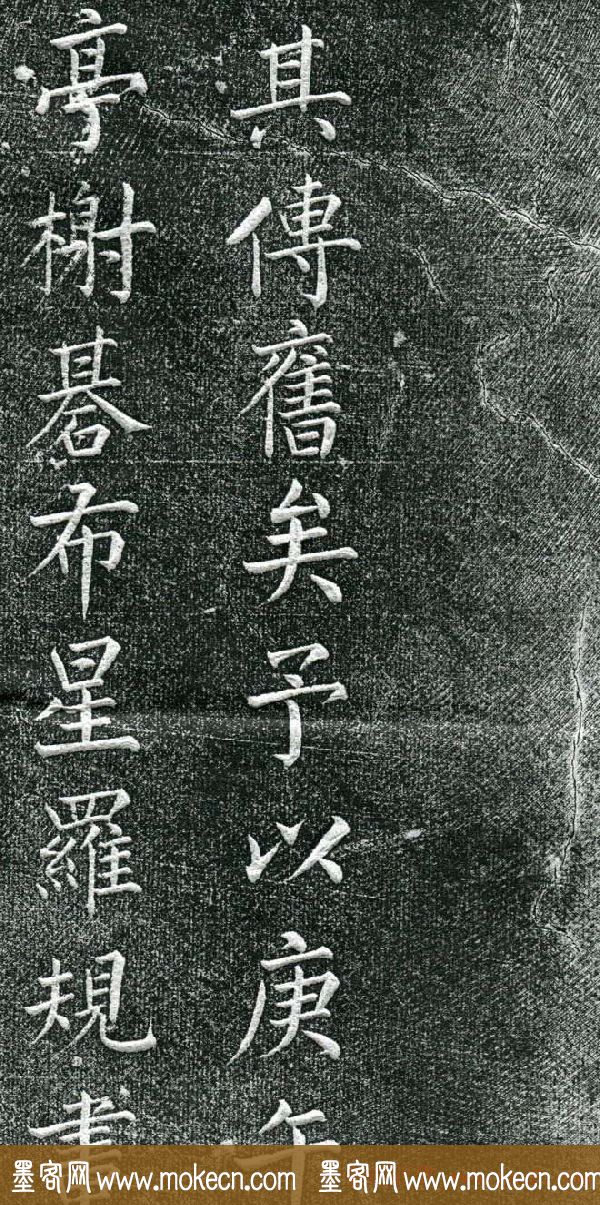 其傳舊矣予以庚午
亭榭碁布星羅規畫
墨客网 www.mokecn.com 墨客网 www.mokecn.com